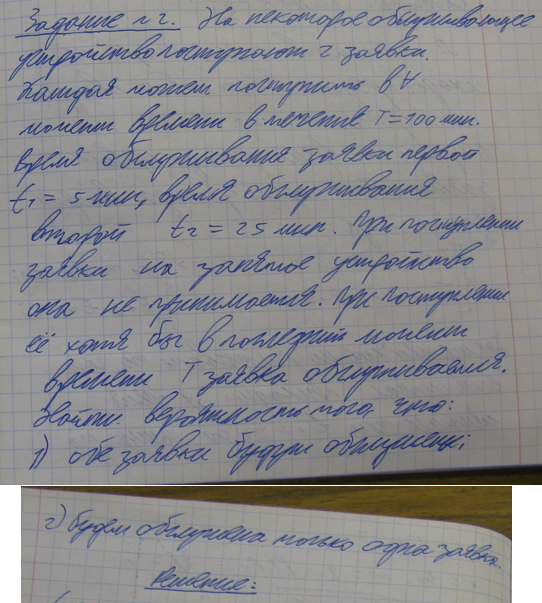 Задание №2. На некоторое обслуживающее
устройство поступают 2 заявки.
Каждая может поступить в ∀
момент времени в течение T=100 мин.
Время обслуживания заявки первой
t₁ = 5 мин, время обслуживания
второй t₂ = 25 мин. При поступлении
заявки на занятое устройство
она не принимается. При поступлении
её хотя бы в последний момент
времени T заявка обслуживается.
Найти вероятность того, что:
1) обе заявки будут обслужены;
2) будет обслужена только одна заявка.
Решение: